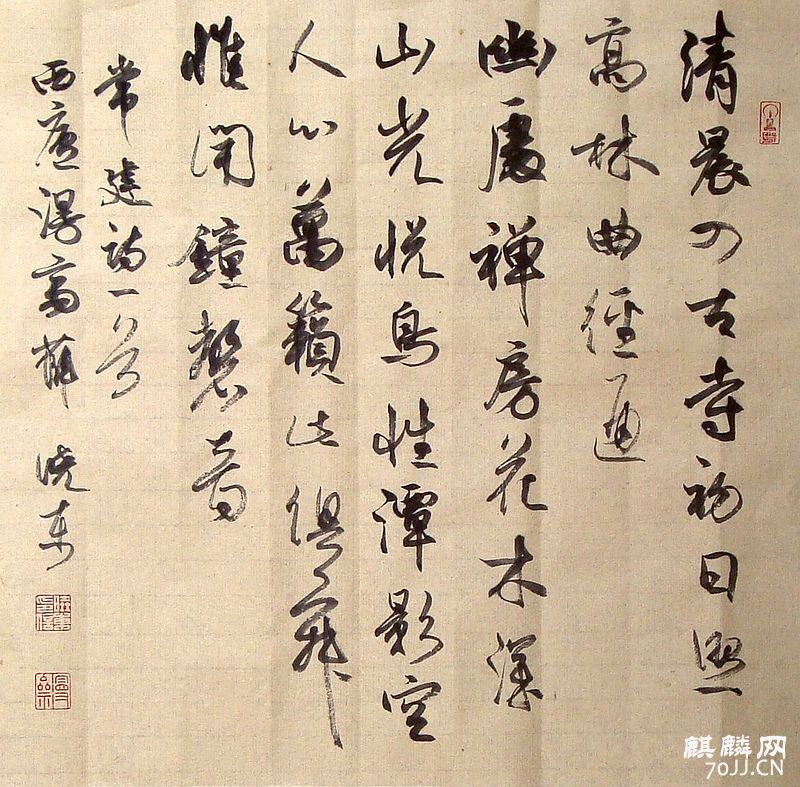 清晨入古寺初日照
高林曲徑通
幽處禅房花木深
山光悦鳥性潭影空
人心萬籟此俱寂
惟闻鐘磬音
常建詩一首
晓东
麒麟网
70JJ.CN